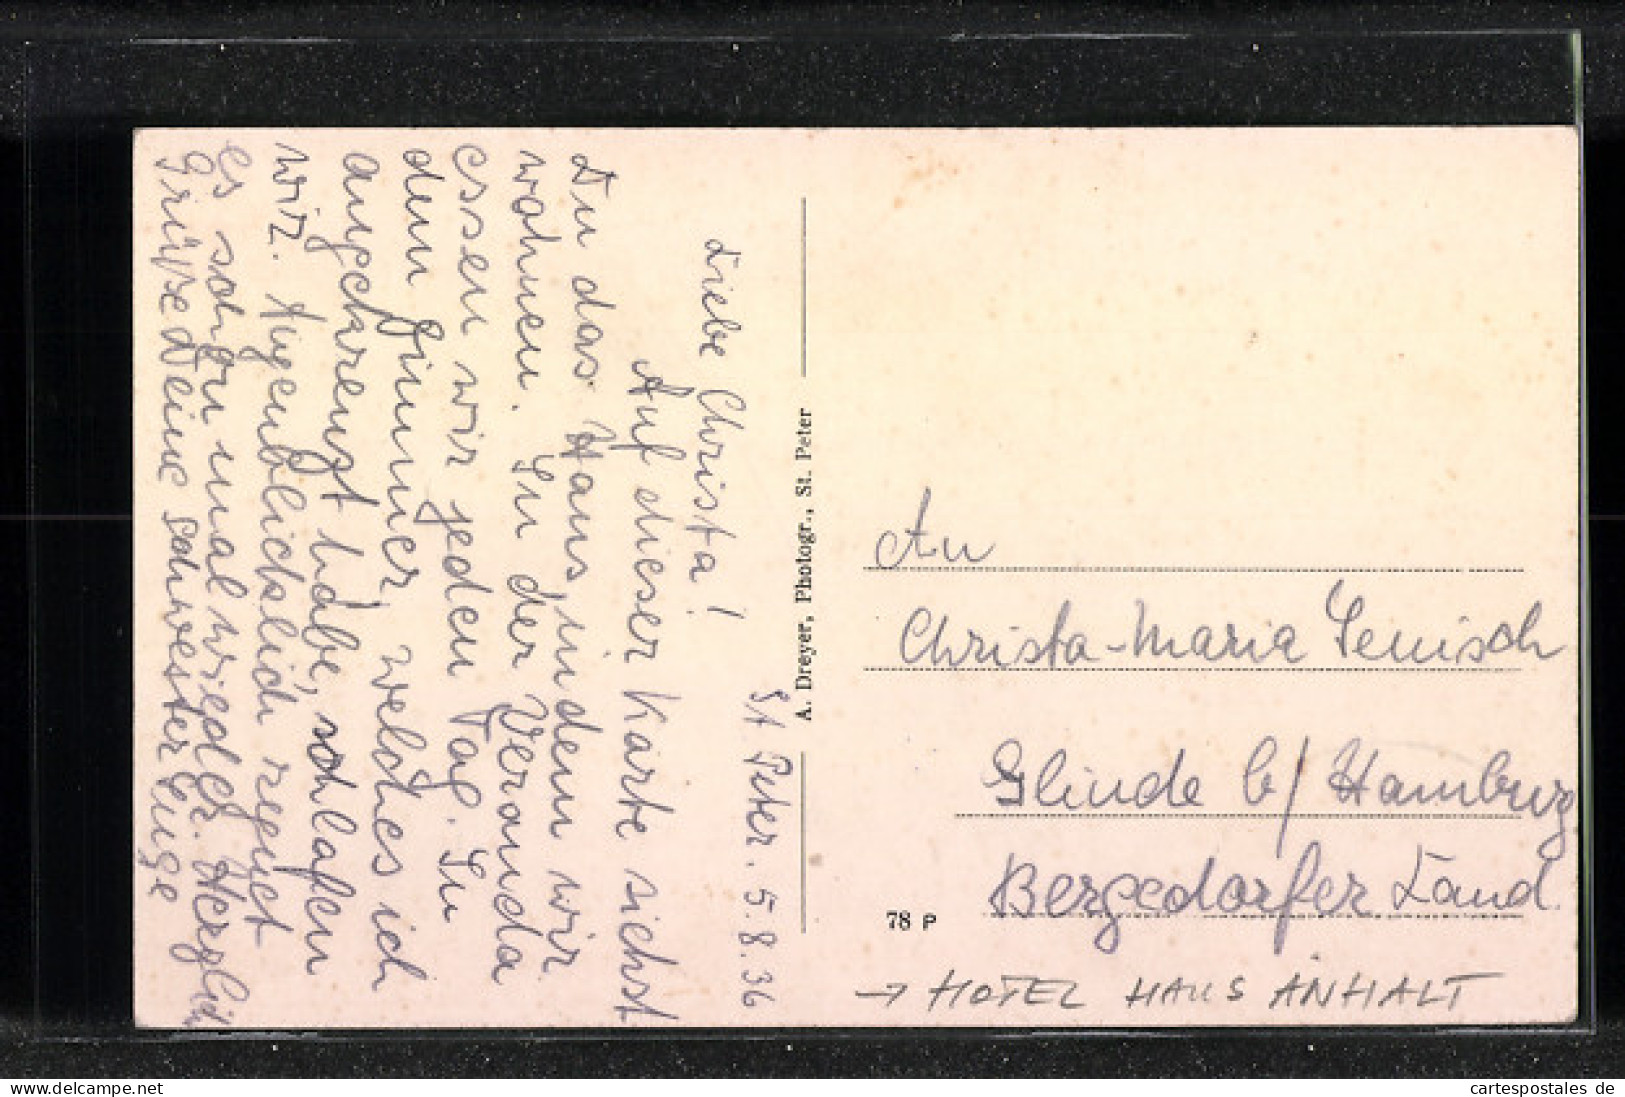 St Peter. 5.8.36
Liebe Christa!
Auf dieser Karte siehst
Du das Haus, in dem wir
wohnen. In der Veranda
essen wir jeden Tag. In
dem Zimmer, welches ich
angekreuzt habe, schlafen
wir. Augenblicklich regnet
es schon mal wieder. Herzlich
Grüsse Deine Schwester Inge
A. Dreyer, Photogr., St. Peter
An
Christa-Maria Jenisch
Glinde b/ Hamburg
Bergedorfer Land.
78 P
→ HOTEL HAUS ANHALT
cartespostales.de
cartespostales de